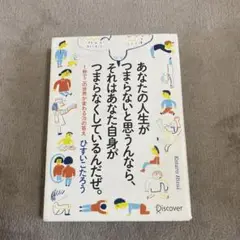 あなたの人生が
つまらないと思うんなら、
それはあなた自身が
つまらなくしているんだぜ。
ひすいこたろう
Discover